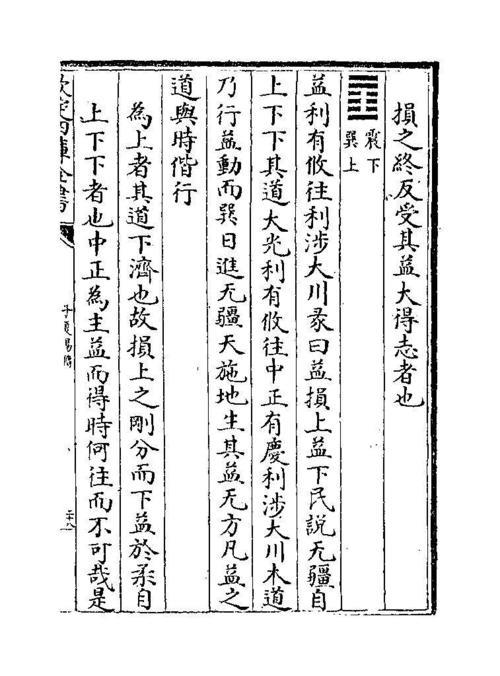 損之終反受其益大得志者也
震下
巽上
益利有攸往利涉大川彖曰益損上益下民說无疆自
上下下其道大光利有攸往中正有慶利涉大川木道
乃行益動而巽日進无疆天施地生其益无方凡益之
道與時偕行
為上者其道下濟也故損上之剛分而下益於柔自
上下下者也中正為主益而得時何往而不可哉是
欽定四庫全書
子夏易傳